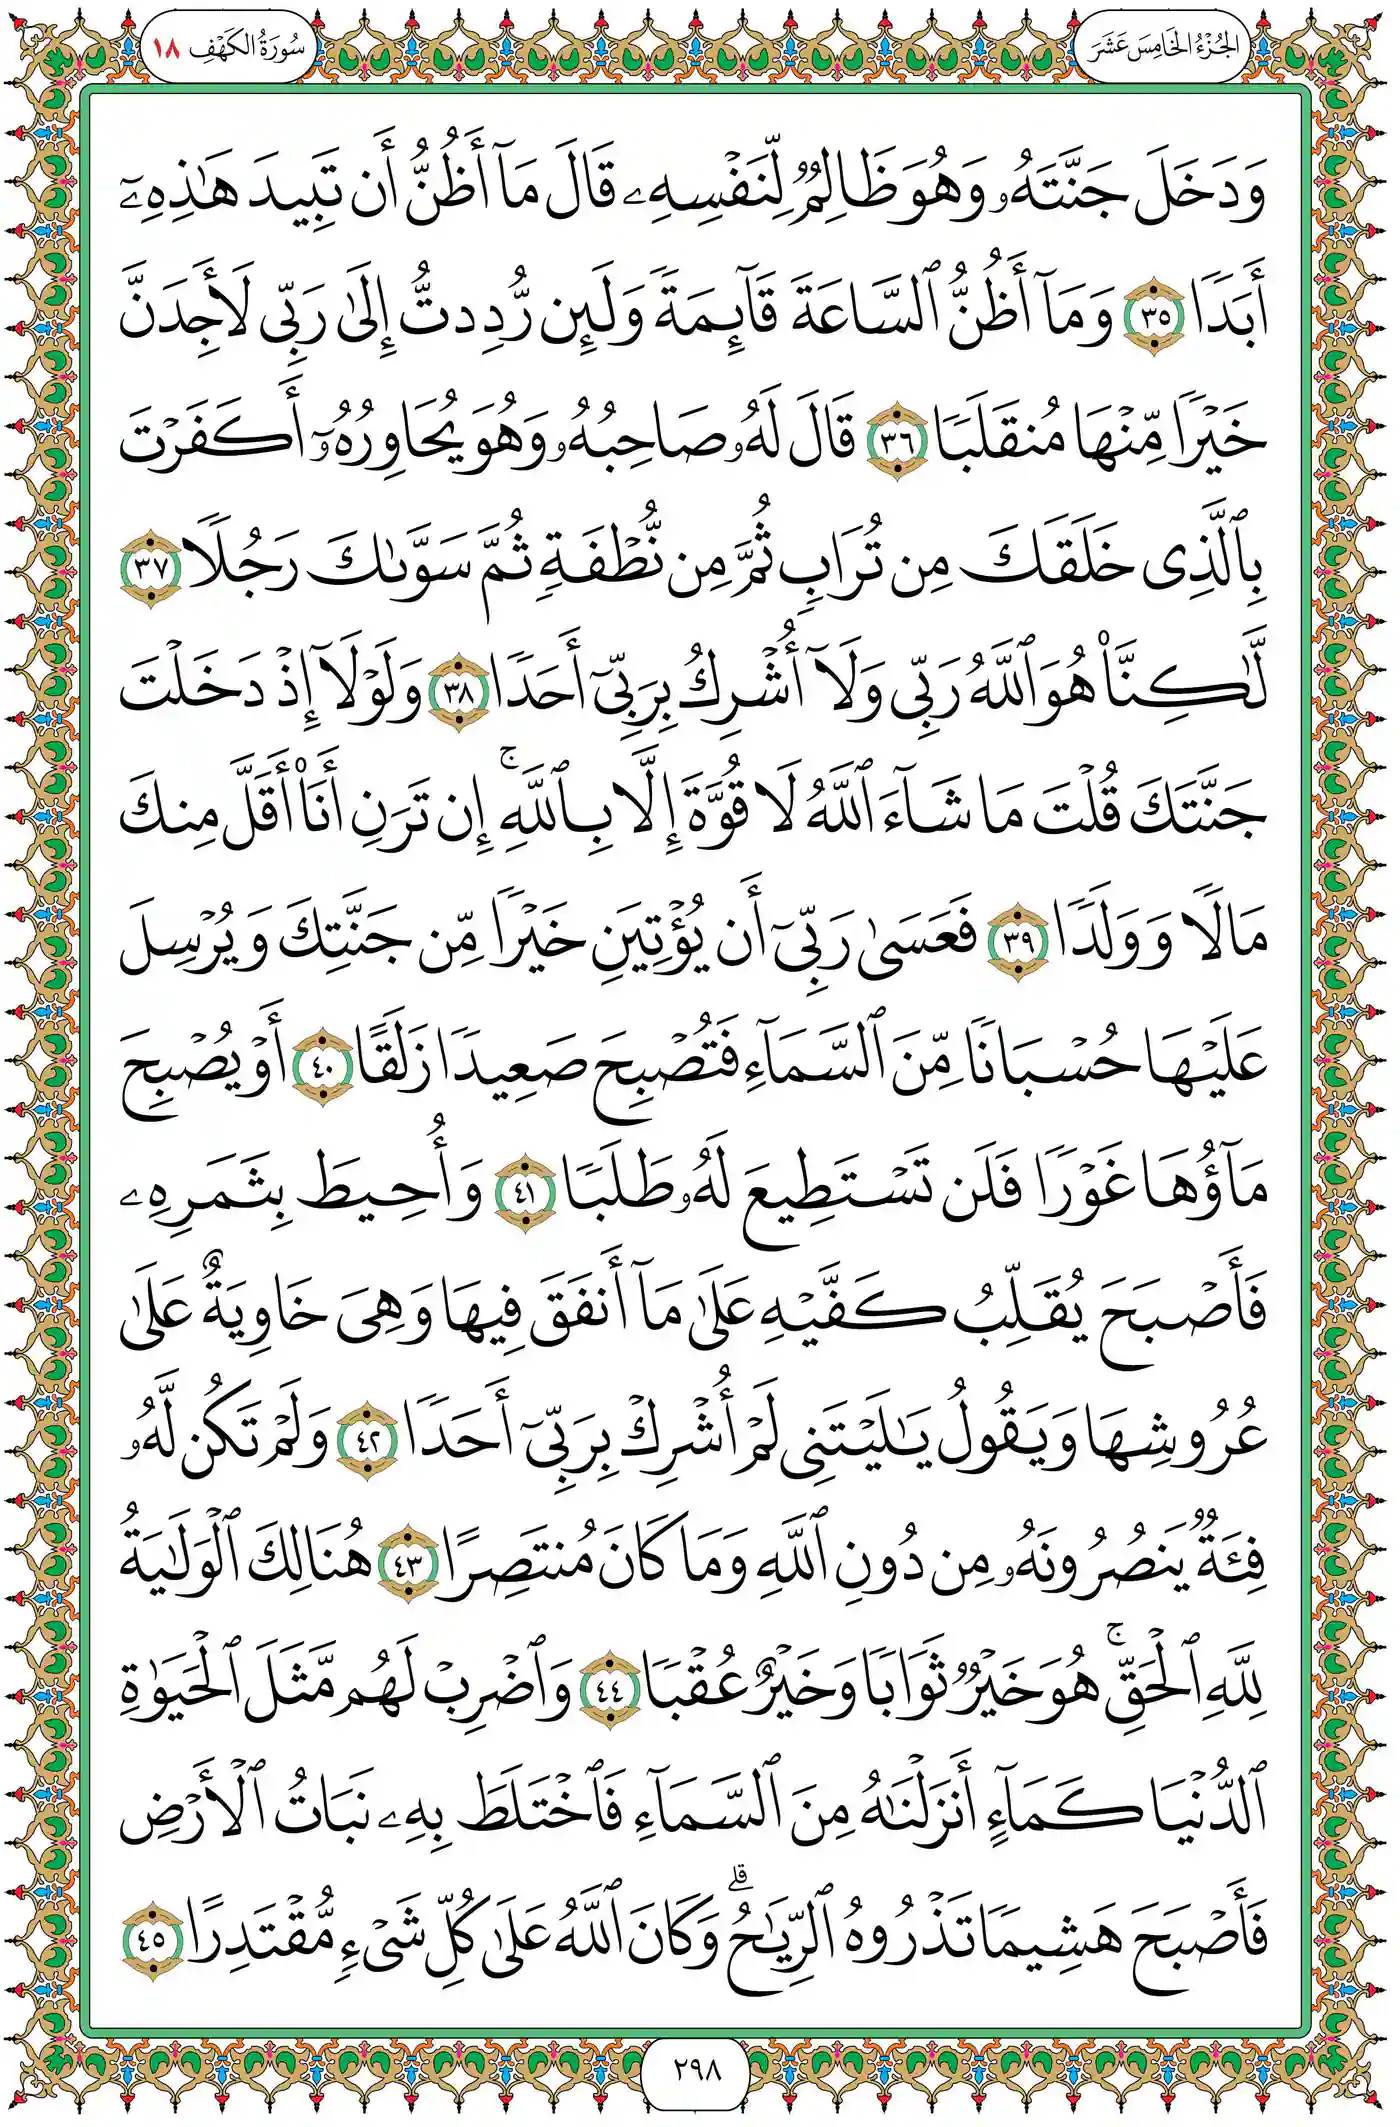 الجُزْءُ الخَامِسَ عَشَرَ
سُورَةُ الكَهْفِ ١٨
وَدَخَلَ جَنَّتَهُۥ وَهُوَ ظَالِمٌ لِّنَفْسِهِۦ قَالَ مَآ أَظُنُّ أَن تَبِيدَ هَٰذِهِۦٓ
أَبَدًا ٣٥ وَمَآ أَظُنُّ ٱلسَّاعَةَ قَآئِمَةً وَلَئِن رُّدِدتُّ إِلَىٰ رَبِّى لَأَجِدَنَّ
خَيْرًا مِّنْهَا مُنقَلَبًا ٣٦ قَالَ لَهُۥ صَاحِبُهُۥ وَهُوَ يُحَاوِرُهُۥٓ أَكَفَرْتَ
بِٱلَّذِى خَلَقَكَ مِن تُرَابٍ ثُمَّ مِن نُّطْفَةٍ ثُمَّ سَوَّىٰكَ رَجُلًا ٣٧
لَّٰكِنَّا۠ هُوَ ٱللَّهُ رَبِّى وَلَآ أُشْرِكُ بِرَبِّىٓ أَحَدًا ٣٨ وَلَوْلَآ إِذْ دَخَلْتَ
جَنَّتَكَ قُلْتَ مَا شَآءَ ٱللَّهُ لَا قُوَّةَ إِلَّا بِٱللَّهِ ۚ إِن تَرَنِ أَنَا۠ أَقَلَّ مِنكَ
مَالًا وَوَلَدًا ٣٩ فَعَسَىٰ رَبِّىٓ أَن يُؤْتِيَنِ خَيْرًا مِّن جَنَّتِكَ وَيُرْسِلَ
عَلَيْهَا حُسْبَانًا مِّنَ ٱلسَّمَآءِ فَتُصْبِحَ صَعِيدًا زَلَقًا ٤٠ أَوْ يُصْبِحَ
مَآؤُهَا غَوْرًا فَلَن تَسْتَطِيعَ لَهُۥ طَلَبًا ٤١ وَأُحِيطَ بِثَمَرِهِۦ
فَأَصْبَحَ يُقَلِّبُ كَفَّيْهِ عَلَىٰ مَآ أَنفَقَ فِيهَا وَهِىَ خَاوِيَةٌ عَلَىٰ
عُرُوشِهَا وَيَقُولُ يَٰلَيْتَنِى لَمْ أُشْرِكْ بِرَبِّىٓ أَحَدًا ٤٢ وَلَمْ تَكُن لَّهُۥ
فِئَةٌ يَنصُرُونَهُۥ مِن دُونِ ٱللَّهِ وَمَا كَانَ مُنتَصِرًا ٤٣ هُنَالِكَ ٱلْوَلَٰيَةُ
لِلَّهِ ٱلْحَقِّ ۚ هُوَ خَيْرٌ ثَوَابًا وَخَيْرٌ عُقْبًا ٤٤ وَٱضْرِبْ لَهُم مَّثَلَ ٱلْحَيَوٰةِ
ٱلدُّنْيَا كَمَآءٍ أَنزَلْنَٰهُ مِنَ ٱلسَّمَآءِ فَٱخْتَلَطَ بِهِۦ نَبَاتُ ٱلْأَرْضِ
فَأَصْبَحَ هَشِيمًا تَذْرُوهُ ٱلرِّيَٰحُ ۗ وَكَانَ ٱللَّهُ عَلَىٰ كُلِّ شَىْءٍ مُّقْتَدِرًا ٤٥
٢٩٨